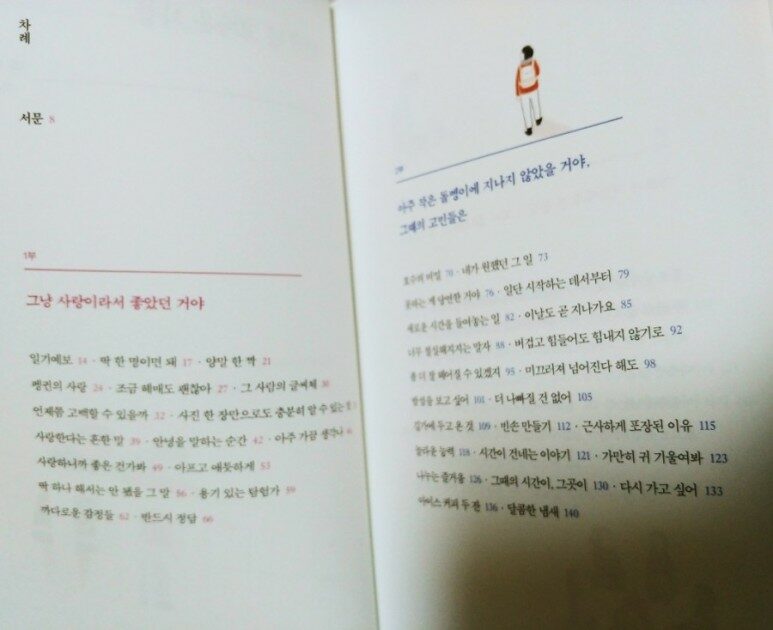 차례
서문 8
1부
그냥 사랑이라서 좋았던 거야
일기예보 14 · 딱 한 명이면 돼 17 · 양말 한 짝 21
펭귄의 사랑 24 · 조금 헤매도 괜찮아 27 · 그 사람의 글씨체 30
언제쯤 고백할 수 있을까 32 · 사진 한 장만으로도 충분히 알 수 있는
사랑한다는 흔한 말 39 · 안녕을 말하는 순간 42 · 아주 가끔 생각나
사랑하니까 좋은 건가봐 49 · 아프고 애틋하게 53
딱 하나 해서는 안 됐을 그 말 56 · 용기 있는 탐험가 59
까다로운 감정들 62 · 반드시 정답 66
2부
아주 작은 돌멩이에 지나지 않았을 거야,
그때의 고민들은
호수의 비밀 70 · 내가 원했던 그 일 73
못하는 게 당연한 거야 76 · 일단 시작하는 데서부터 79
새로운 시간을 들여놓는 일 82 · 이날도 곧 지나가요 85
너무 절실해지지는 말자 88 · 버겁고 힘들어도 힘내지 않기로 92
좀 더 잘 해어질 수 있겠지 95 · 미끄러져 넘어진다 해도 98
밤섬을 보고 싶어 101 · 더 나빠질 건 없어 105
길가에 두고 온 것 109 · 빈손 만들기 112 · 근사하게 포장된 이유 115
놀라운 능력 118 · 시간이 건네는 이야기 121 · 가만히 귀 기울여봐 123
나누는 즐거움 126 · 그때의 시간이, 그곳이 130 · 다시 가고 싶어 133
아이스 커피 두 잔 136 · 달콤한 냄새 140